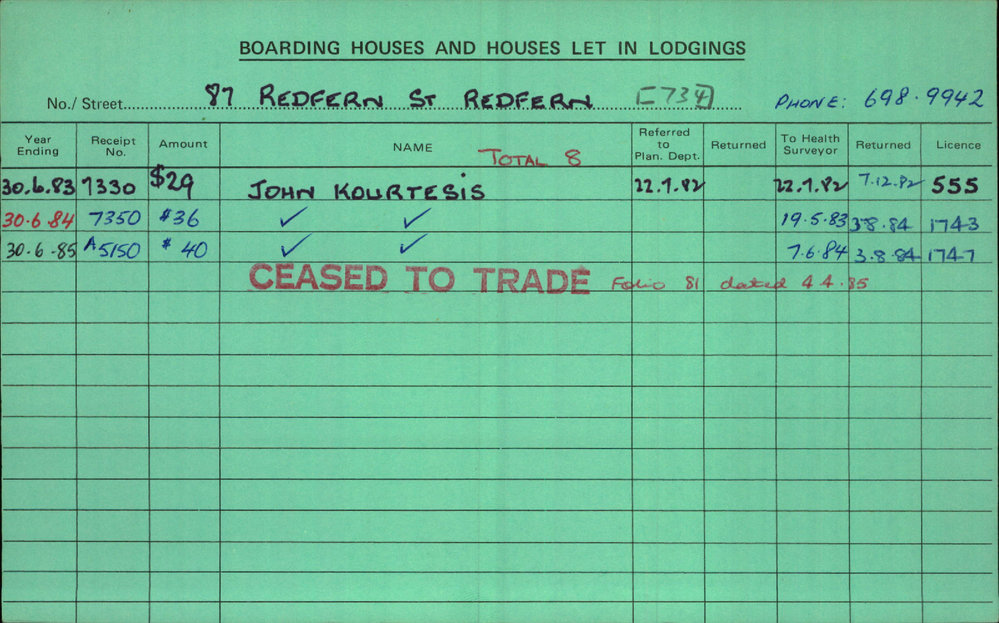 BOARDING HOUSES AND HOUSES LET IN LODGINGS
No./ Street 87 REDFERN ST REDFERN [734] PHONE: 698.9942
Year Ending Receipt No. Amount NAME TOTAL 8 Referred to Plan. Dept. Returned To Health Surveyor Returned Licence
30.6.83 7330 $29 JOHN KOURTESIS 22.7.82 22.7.82 7.12.82 555
30.6.84 7350 $36 ✓ ✓ 19.5.83 3.8.84 1743
30.6.85 A5150 $40 ✓ ✓ 7.6.84 3.8.84 1747
CEASED TO TRADE Folio 81 dated 4.4.85